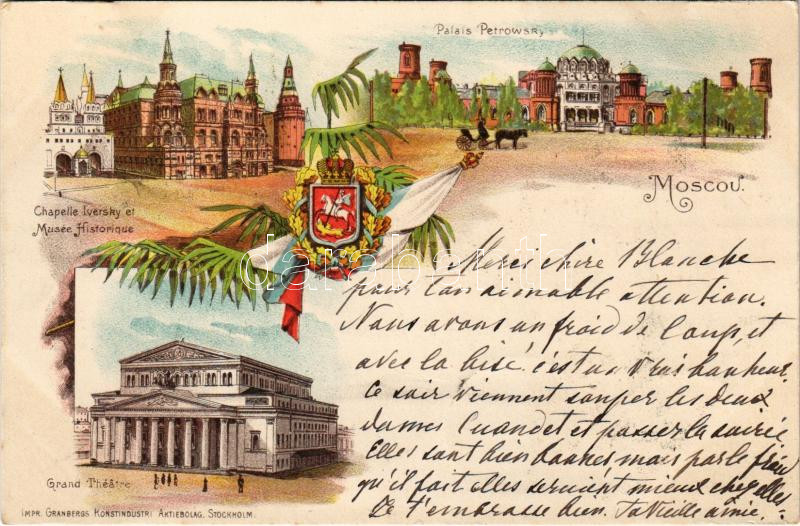 Palais Petrowsky
Chapelle Iversky et
Musée Historique
Moscou.
darabanth
Merci chère Blanche
pour ton aimable attention.
Nous avons un froid de loup, et
avec la bise c'est un vrai bonheur.
Ce soir viennent souper les deux
dames et passer la soirée
Elles sont bien bonnes mais par le froid
qu'il fait elles seraient mieux chez elles
Je t'embrasse bien. Ta vieille amie.
Grand Théâtre
IMPR. GRANBERGS KONSTINDUSTRI AKTIEBOLAG, STOCKHOLM.